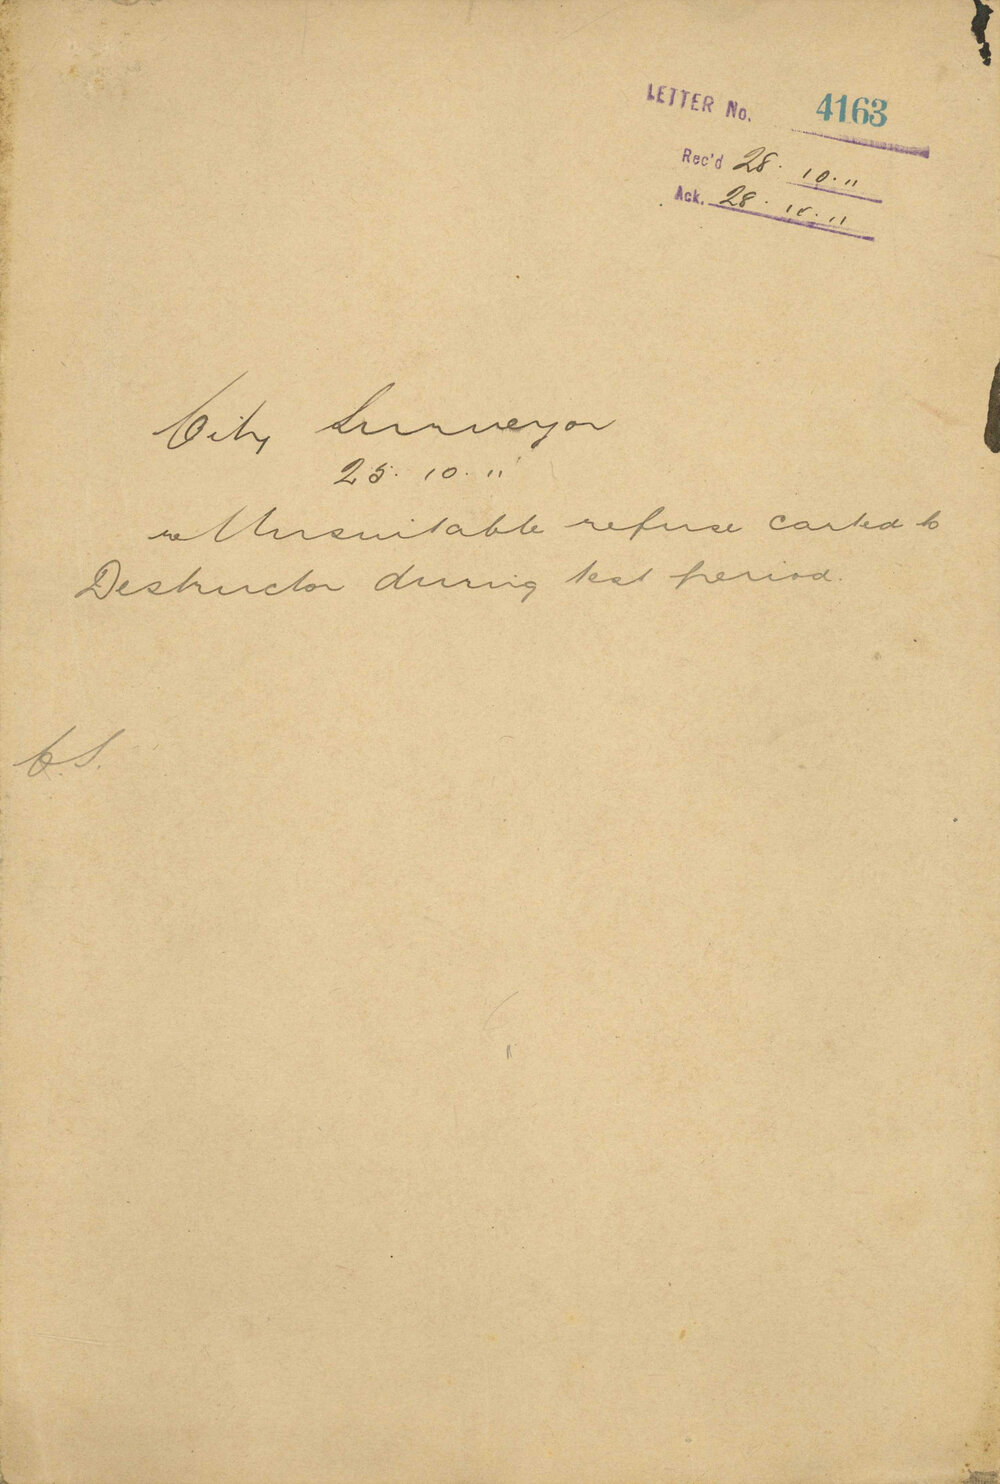 LETTER No. 4163
Rec'd 28. 10. 11
Ack. 28. 10. 11
City Surveyor
25. 10. 11
re Unsuitable refuse carted to
Destructor during test period.
C.S.